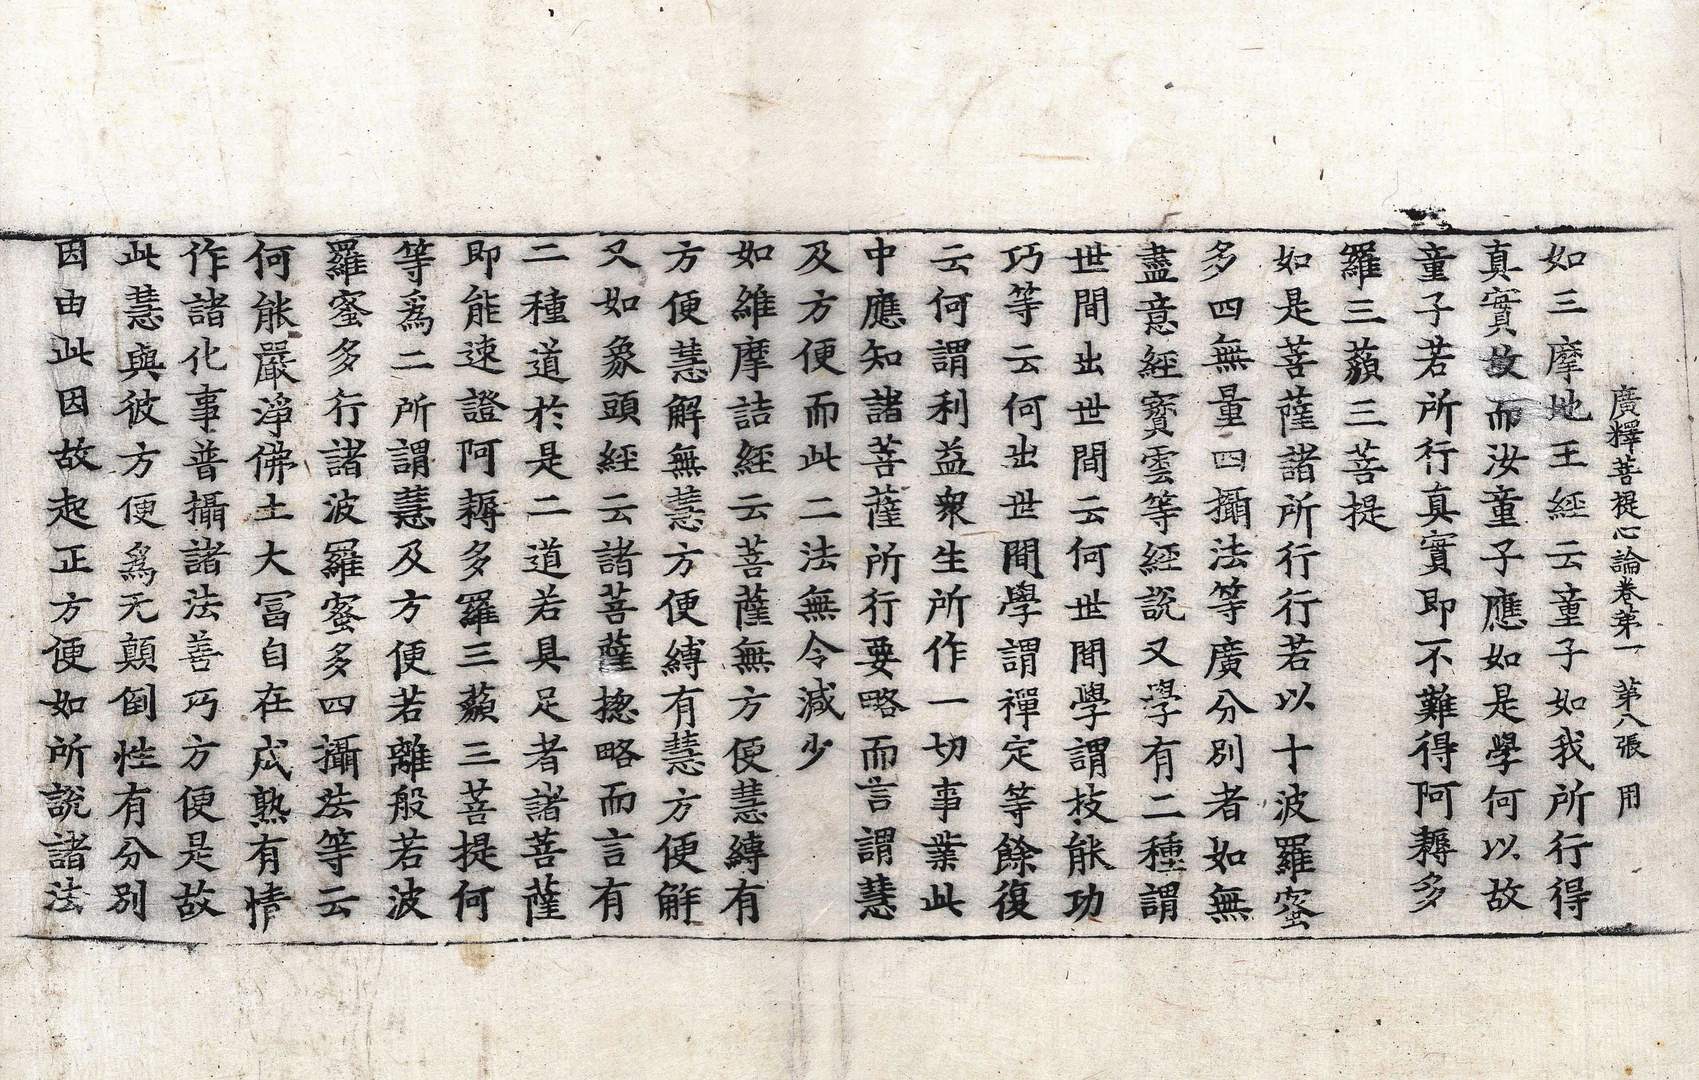 廣釋菩提心論卷第一　第八張　用
如三摩地王經云童子如我所行得
真實故而汝童子應如是學何以故
童子若所行真實即不難得阿耨多
羅三藐三菩提
如是菩薩諸所行行若以十波羅蜜
多四無量四攝法等廣分別者如無
盡意經寶雲等經說又學有二種謂
世間出世間云何世間學謂技能功
巧等云何出世間學謂禪定等餘復
云何謂利益衆生所作一切事業此
中應知諸菩薩所行要略而言謂慧
及方便而此二法無令減少
如維摩詰經云菩薩無方便慧縛有
方便慧解無慧方便縛有慧方便解
又如象頭經云諸菩薩揔略而言有
二種道於是二道若具足者諸菩薩
即能速證阿耨多羅三藐三菩提何
等爲二所謂慧及方便若離般若波
羅蜜多行諸波羅蜜多四攝法等云
何能嚴淨佛土大冨自在成熟有情
作諸化事普攝諸法善巧方便是故
此慧與彼方便爲无顛倒性有分別
因由此因故起正方便如所說諸法